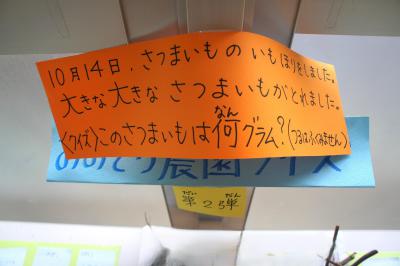 10月14日、さつまいもの いもほりをしました。
大きな大きな さつまいもがとれました。
なん
〈クイズ〉このさつまいもは何グラム?(つるはふくみません)
農園クイズ
だい だん
第2弾